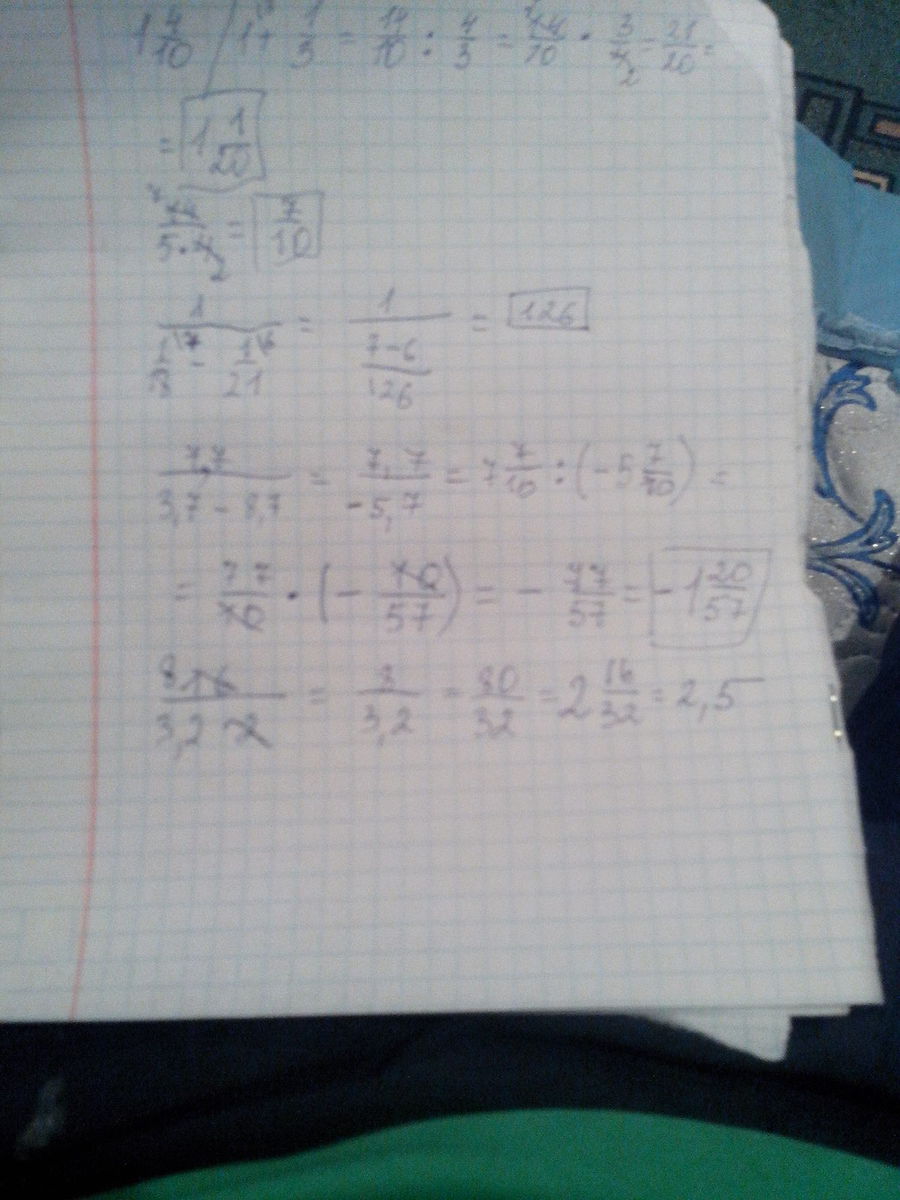 1 4/10 / 1 + 1/3 = 14/10 : 4/3 = 14/10 · 3/4 2 = 21/20 =
= 1 1/20
7 14/5·4 2 = 7/10
1/(1/18 \7 - 1/21 \6) = 1/((7-6)/126) = 126
7,7/(3,7 - 8,7) = 7,7/-5,7 = 7 7/10 : (-5 7/10) =
= 77/10 · (- 10/57) = - 77/57 = -1 20/57
8 16/(3,2 2) = 8/3,2 = 80/32 = 2 16/32 = 2,5